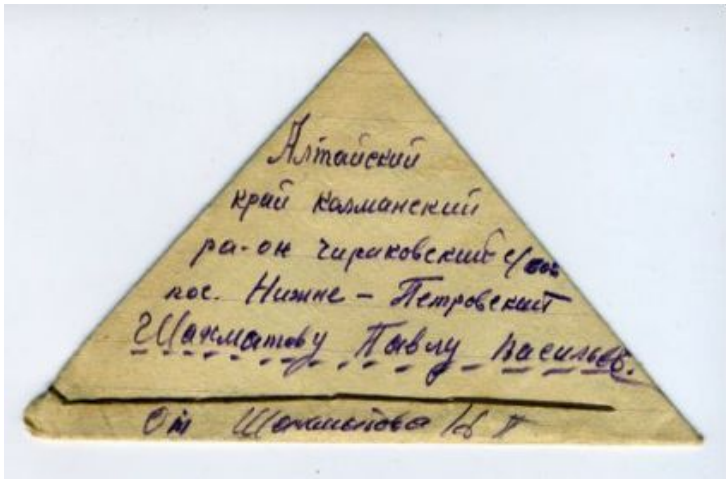 Алтайский
край калманский
ра-он чираковский с/сов
пос. Нижне – Петровский
Шахматову Павлу Васильев.
От Шахматова